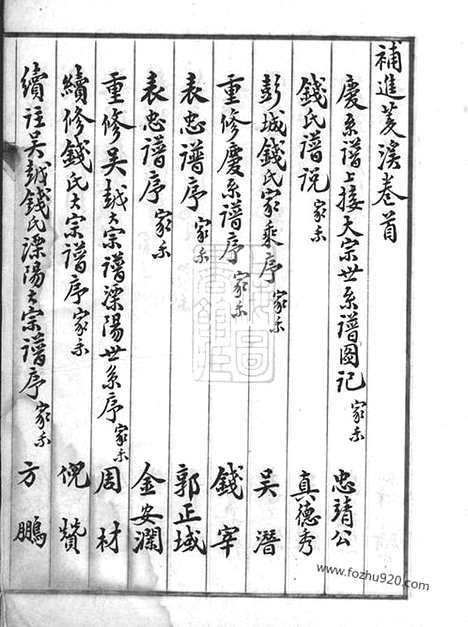 補進菱溪卷首
慶系譜上接大宗世系譜圖記 家示 忠靖公
錢氏譜說 家示 真德秀
彭城錢氏家乘序 家示 吳潛
重修慶系譜序 家示 錢宰
表忠譜序 家示 郭正域
表忠譜序 家示 金安瀾
重修吳越大宗譜溧陽世系序 家示 周材
續修錢氏大宗譜序 家示 倪瓚
續註吳越錢氏溧陽大宗譜序 家示 方鵬
www.fozhu920.com